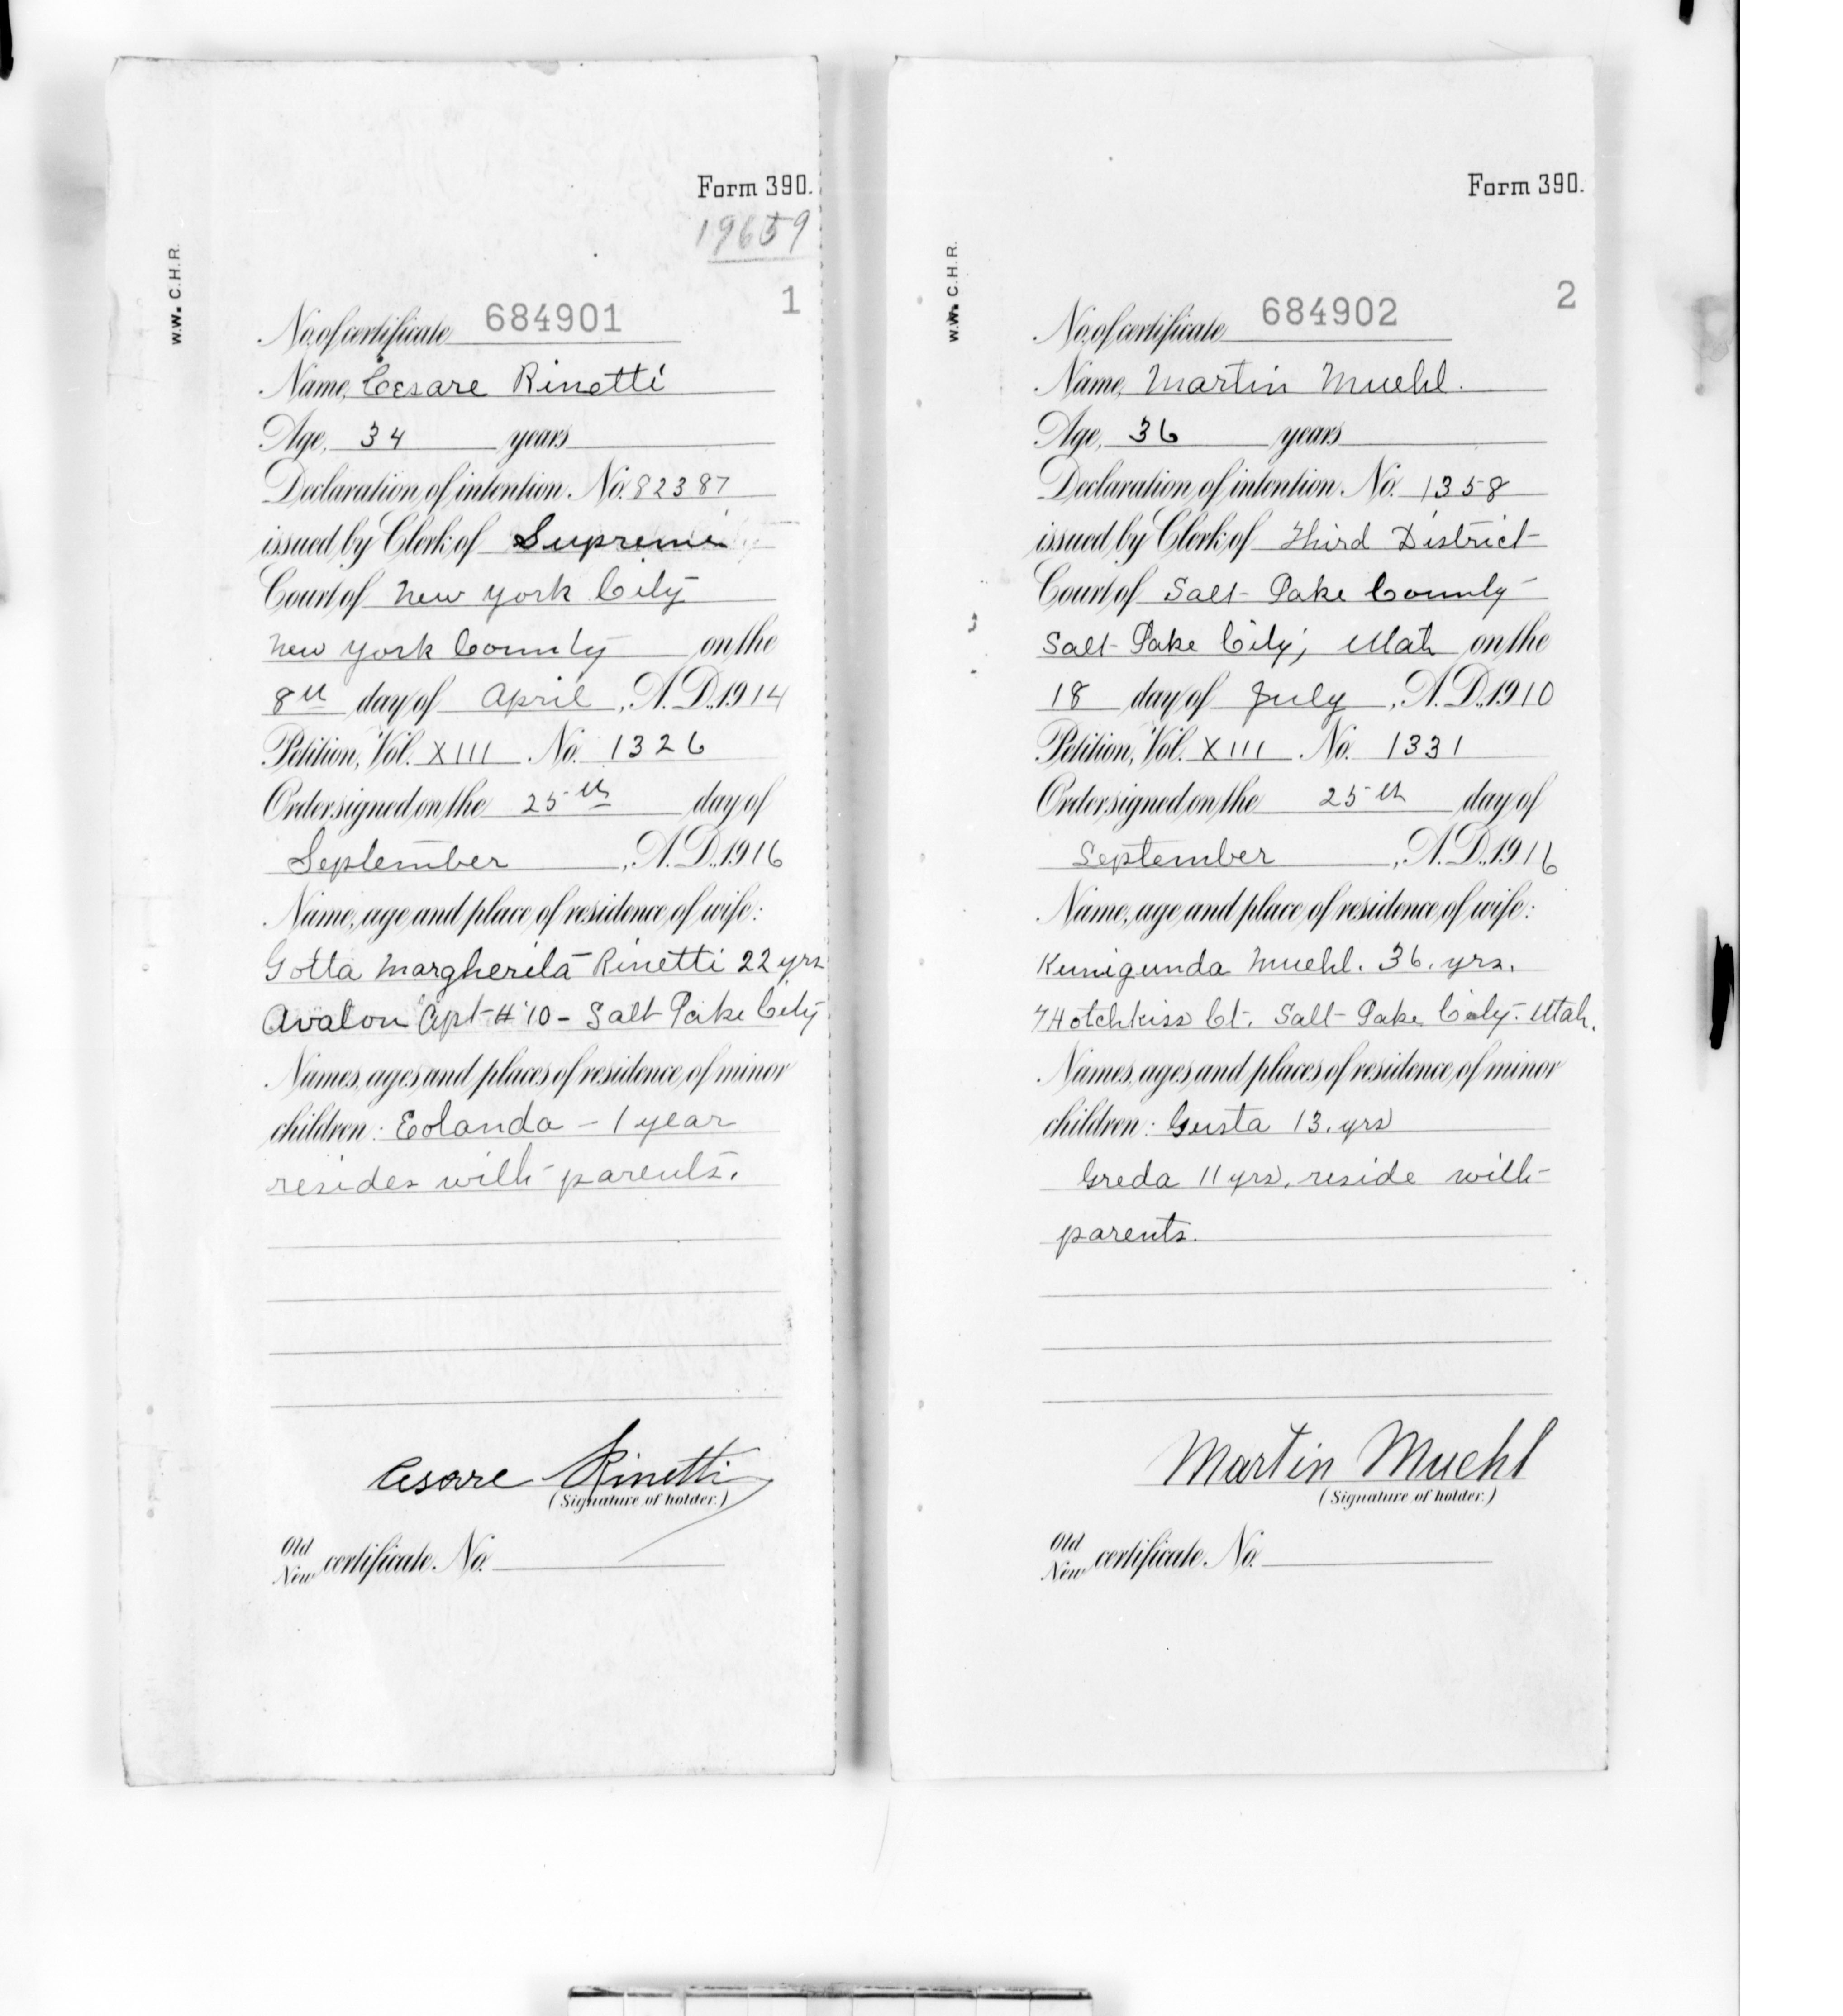 Form 390.
19659
W.W. C.H.R.
1
No. of certificate 684901
Name, Cesare Rinetti
Age, 34 years
Declaration of intention. No. 82387
issued by Clerk of Supreme
Court of New York City
New York County on the
8th day of April, A.D. 1914
Petition, Vol. XIII. No. 1326
Order signed on the 25th day of
September, A.D. 1916
Name, age and place of residence of wife:
Gotta Margherita Rinetti 22 yrs
Avalon Apt # 10 - Salt Lake City
Names, ages and places of residence of minor
children: Eolanda - 1 year
resides with parents.
Cesare Rinetti
(Signature of holder.)
Old
New certificate. No.
Form 390.
W.W. C.H.R.
2
No. of certificate 684902
Name, Martin Muehl.
Age, 36 years
Declaration of intention. No. 1358
issued by Clerk of Third District
Court of Salt Lake County
Salt Lake City, Utah on the
18 day of July, A.D. 1910
Petition, Vol. XIII. No. 1331
Order signed on the 25th day of
September, A.D. 1916
Name, age and place of residence of wife:
Kunigunda Muehl. 36. yrs.
7 Hotchkiss Ct. Salt Lake City. Utah.
Names, ages and places of residence of minor
children: Gusta 13. yrs
Greda 11 yrs. reside with
parents.
Martin Muehl
(Signature of holder.)
Old
New certificate. No.